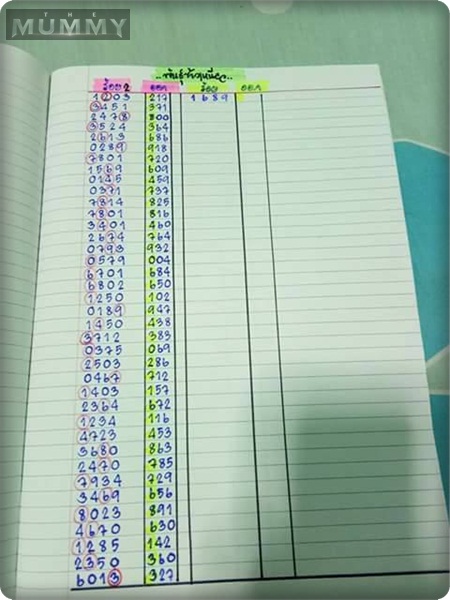 THE
MUMMY
..พันธุ์ข้าวเหนียว..
ร้อย 2 ออก ร้อย ออก
1203 217 1689
3451 371
2478 800
3524 364
2613 686
0289 918
7801 720
1569 609
0145 459
0371 737
7814 825
7801 816
3401 460
2674 764
0793 932
0579 004
6701 684
6802 650
1250 102
0189 947
1450 438
3712 383
0375 069
2503 286
0467 712
1403 157
2364 672
1234 116
4723 453
3680 863
2470 785
7934 729
3469 656
8023 891
4670 630
1285 142
2350 360
6013 327